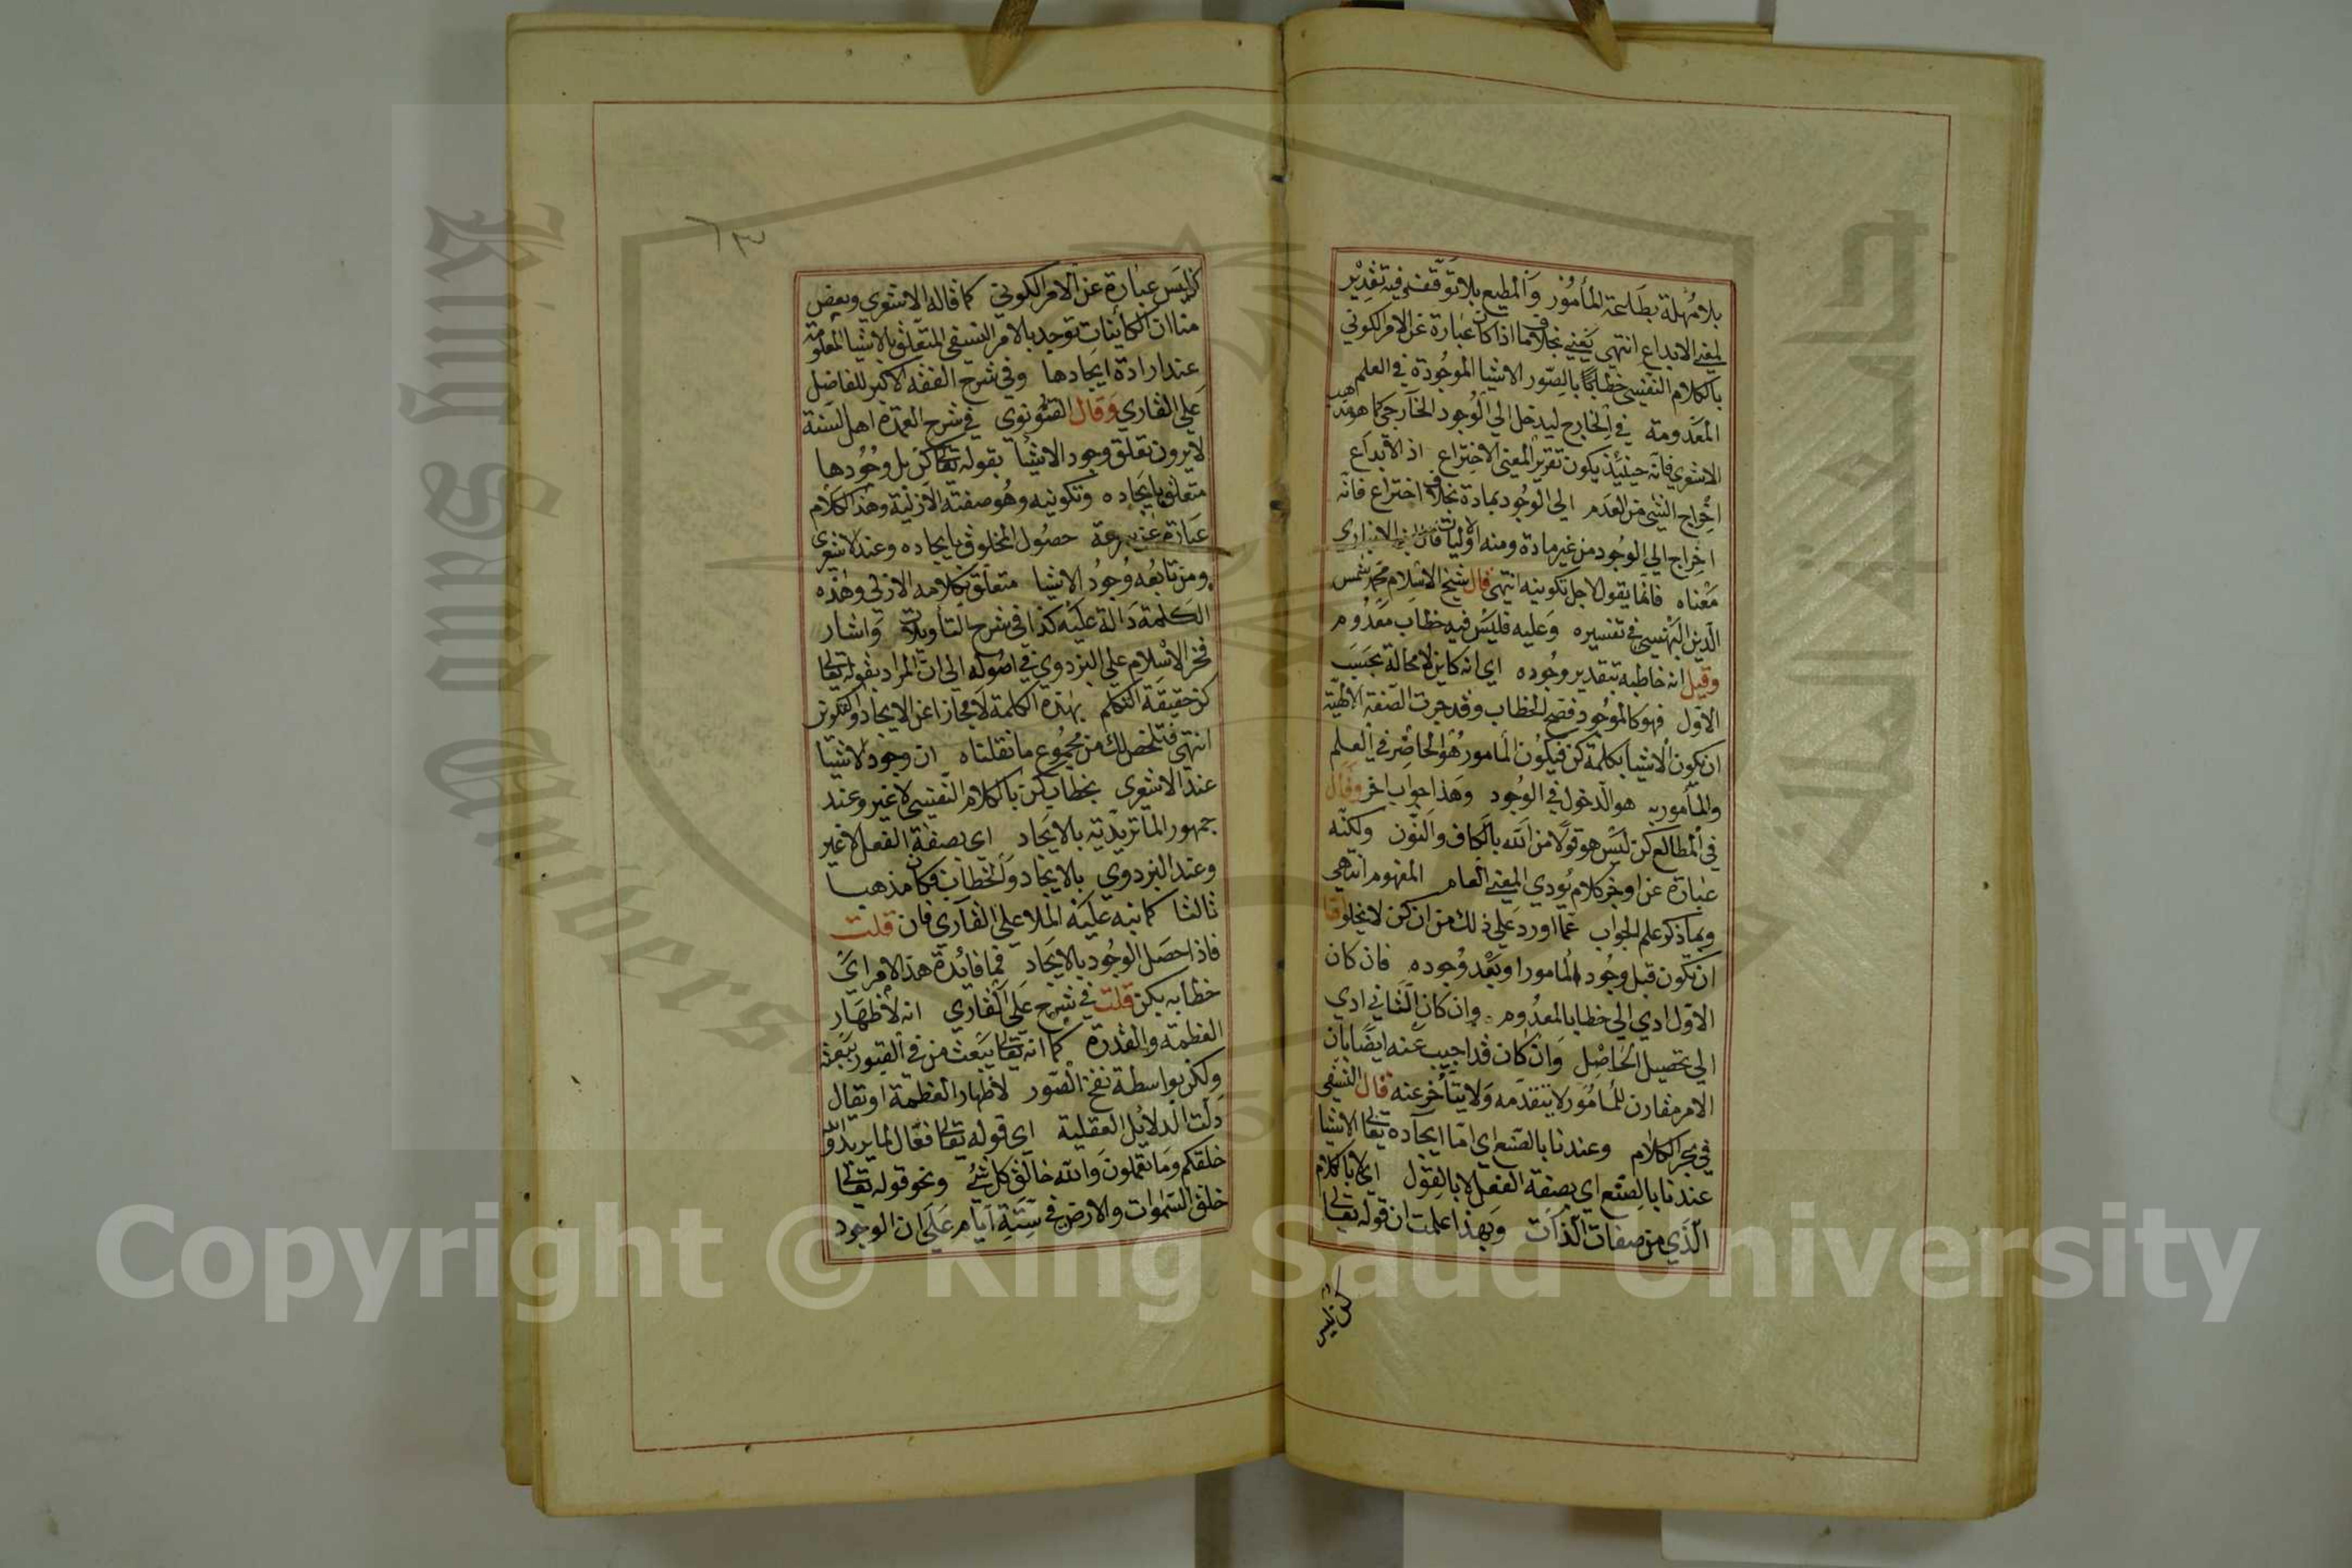 بلا مُهلة بطاعة المأمُور وَالمطيع بلا توقف فيه تقدير
لمعنى الابداع انتهى يعني بخلاف ما اذا كان عبارة عن الامر الكوني
بالكلام النفسي خطابًا بالصّور الاشيا الموجُودة في العلم
المعَدومة في الخارج ليدخل الي الوُجود الخارجي كما هو مذهب
الاشعري فانه حينئذ يكون تقرير المعنى الاختراع اذ الابداع
اخراج الشي من العدَم الي الوُجود بمادة بخلاف اختراع فانه
اخراج الي الوُجود من غير مادة ومنه اوّليات قال ابن الانباري
معْناه فانما يقول لاجل تكوينه انتهى قال شيخ الاسْلام محمد شمس
الدّين البَهنسي في تفسيره وَعليه فليَسْ فيه خطاب مَعْدُوم
وقيل انه خاطبه بتقدير وجُوده اي انه كاين لا محالة بحسَبَ
الاوّل فهو كالموجُود فصح الخطاب وقد جرت الصّنعة الالهيّة
ان تكون الاشيا بكلمة كن فيكوُن المامور هُو الحاضِر في العِلم
والمأموربه هو الدّخول في الوجُود وهَذا جواب اخر وقال
في المطالع كن ليَسْ هو قولا من الله بالكاف والنّون ولكنّه
عبارة عن اوجز كلام يُودي المعني العام المفهوم انتهي
وبما ذكر علم الجواب عَما اورد عَلي ذلك من ان كن لا يخلو اما
ان تكون قبل وجُود المامور او بَعْد وُجوده فان كان
الاوّل ادي الي خطابا لمعْدُوم وان كان الثاني ادي
الي تحصيل الحاصْل وَان كان قد اجيب عَنه ايضًا بان
الامر مقارن للمأمُور لا يتقدّمه وَلا يتأخر عنه قال النسفي
في بحر الكلام وعندنا بالصّنع اي امّا ايجاده تعالى الاشيا
عندنا بالصّنع اي بصفة الفعل لا بالقول اي لا بالكلام
الذي من صفات الذات وَبهذا علمت ان قوله تعالى
كن ليس
٦٣
كن ليسَ عبارة عن الامر الكوني كما قاله الاشعري وبعض
منا ان الكائنات توجد بالامر النفسي المتعلق بالاشيا المعلومة
عند ارادة ايجادها وفي شرح الفقه الاكبر للفاضل
عَلي القاري وَقال القُونوي في شرح العمدة اهل السّنة
لا يرون تعلق وجود الاشيا بقوله تعالى كن بل وجُودها
متعلق بايجاده وتكوينه وهُو صفته الازليّة وهذا الكلام
عبَارة عن سرعة حصُول المخلوق بايجاده وعند الاشعري
ومن تابعُه وُجودُ الاشيا متعلق بكلامه الازلي وهذه
الكلمة دَالة عليْه كذا في شرح التأويلات وَاشار
فخر الاسْلام علي البزدوي في اصُوله الي ان المراد بقوله تعالى
كن حقيقة التكلم بهذه الكلمة لا مجازا عن الايجاد والتكوين
انتهى فتلخص لك من مجمُوع ما نقلناه ان وجود الاشيا
عند الاشعري بخطاب كن بالكلام النّفسي لا غير وعند
جمهور الماتريديّه بالايجاد اي بصفة الفعل لا غير
وعند البزدوي بالايجاد وَالخطاب فكان مذهبا
ثالثا كما نبه عَليْه الملا علي القاري فان قلت
فاذا حصَل الوجُود بالايجاد فما فائدة هذا الامر اي
خطابه بكن قلت في شرح عَلي القاري انه لاظهَار
العظمة والقدرة كما انه تعالى يبَعث من في القبور بَبعثه
ولكن بواسطة نفخ الصّور لاظهار العظمة او تقال
دلت الدلائل العقلية اي قوله تعالى فعّال لما يريد الله
خلقكم وَما تعملون وَالله خالق كل شيْ ونحو قوله تعالى
خلق السّموات والارض في سِتّةِ اَيّام عَلَي ان الوجُود
Copyright © King Saud University
King Saud University